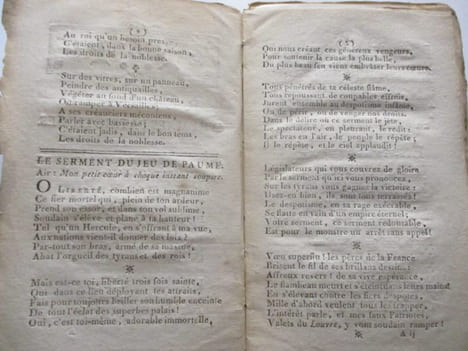 ( 4 )
Au roi qu'un besoin pres
C'étaient, dans la bonne saison,
Les droits de la noblesse.
Sur des vitres, sur un panneau,
Peindre des antiquailles,
Végéter au fond d'un château,
Ou ramper à Versailles;
A ses créanciers mécontens,
Parler avec
C'étaient jadis, dans le bon tems,
Les droits de la noblesse.
LE SERMENT DU JEU DE PAUME.
Air: Mon petit cœur à chaque instant soupire.
O LIBERTÉ, combien est magnanime
Ce fier mortel qui, plein de ton ardeur,
Prend son essor, et dans ton vol sublime,
Soudain s'élève et plane à ta hauteur!
Tel qu'un Hercule, en s'offrant à ma vue,
Aux nations vient-il donner des loix?
Par-tout son bras, armé de sa massue,
Abat l'orgueil des tyrans et des rois!
Mais est-ce toi, liberté trois fois sainte,
Qui dans ce lieu déployant tes attraits,
Fais pour toujours briller son humble enceinte
De tout l'éclat des superbes palais!
Oui, c'est toi-même, adorable immortelle,
( 5 )
Qui nous créant ces généreux vengeurs,
Pour soutenir la cause la plus belle,
Du plus beau feu viens embrâser leurs cœurs.
Tous pénétrés de ta céleste flâme,
Tous repoussant de coupables effrois,
Jurent ensemble au despotisme infâme,
Ou de périr, ou de venger nos droits.
Dans le délire où ce serment le jete,
Le spectateur, en pleurant, le redit:
Les bras en l'air, le peuple le répète;
Il le répète, et le ciel applaudit!
Législateurs qui vous couvrez de gloire
Par le serment qu'ici vous prononcez,
Sur les tyrans vous gagnez la victoire:
Usez-en bien, ils sont tous terrassés!
Le despotisme, en sa rage exécrable,
Se flatte en vain d'un empire éternel;
Votre serment, ce serment redoutable,
Est pour le monstre un arrêt sans appel!
Vœu superflu! les pères de la France
Brisent le fil de ses brillans destins...
Affreux revers! de sa vive espérance,
Le flambeau meurt et s'éteint dans leurs mains
En s'élevant contre les fiers despotes,
Mille d'abord veulent tous les frapper,
L'intérêt parle, et mes faux Patriotes,
Valets du Louvre, y vont soudain ramper!
A ij